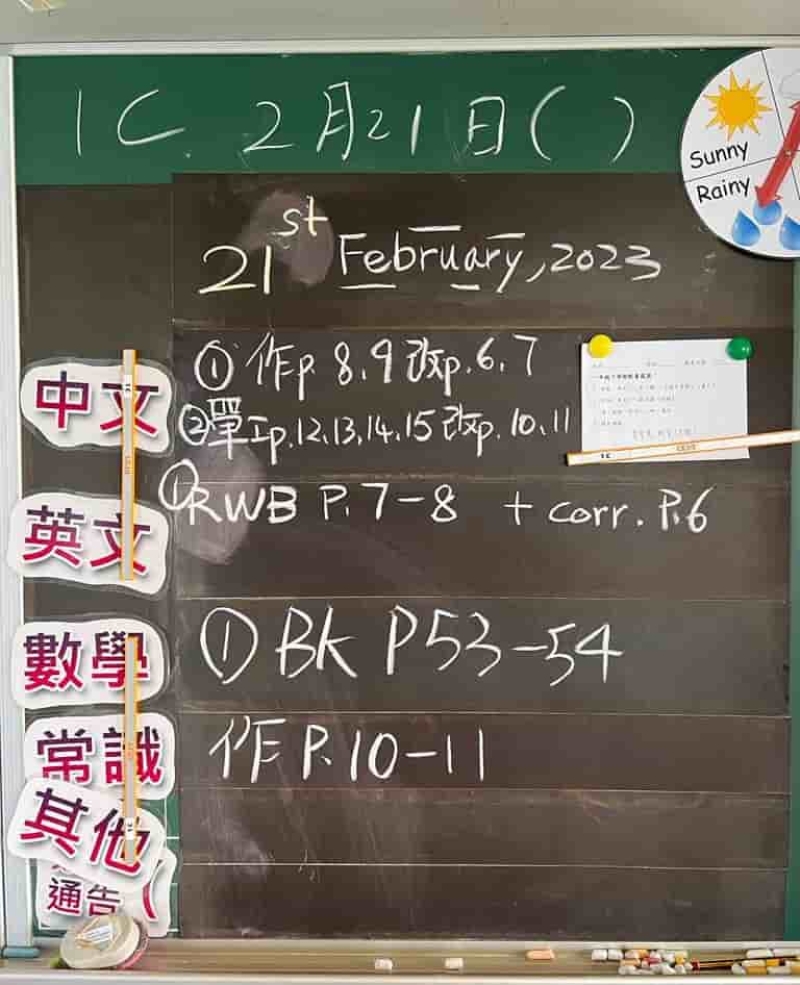 1C. 2月21日( )
Sunny
Rainy
21st February, 2023
中文
①作p. 8, 9 改p. 6, 7
②單工p. 12, 13, 14, 15 改p. 10, 11
英文
①RWB P. 7-8 + corr. P. 6
數學
①Bk P53-54
常識
作 P. 10-11
其他
通告